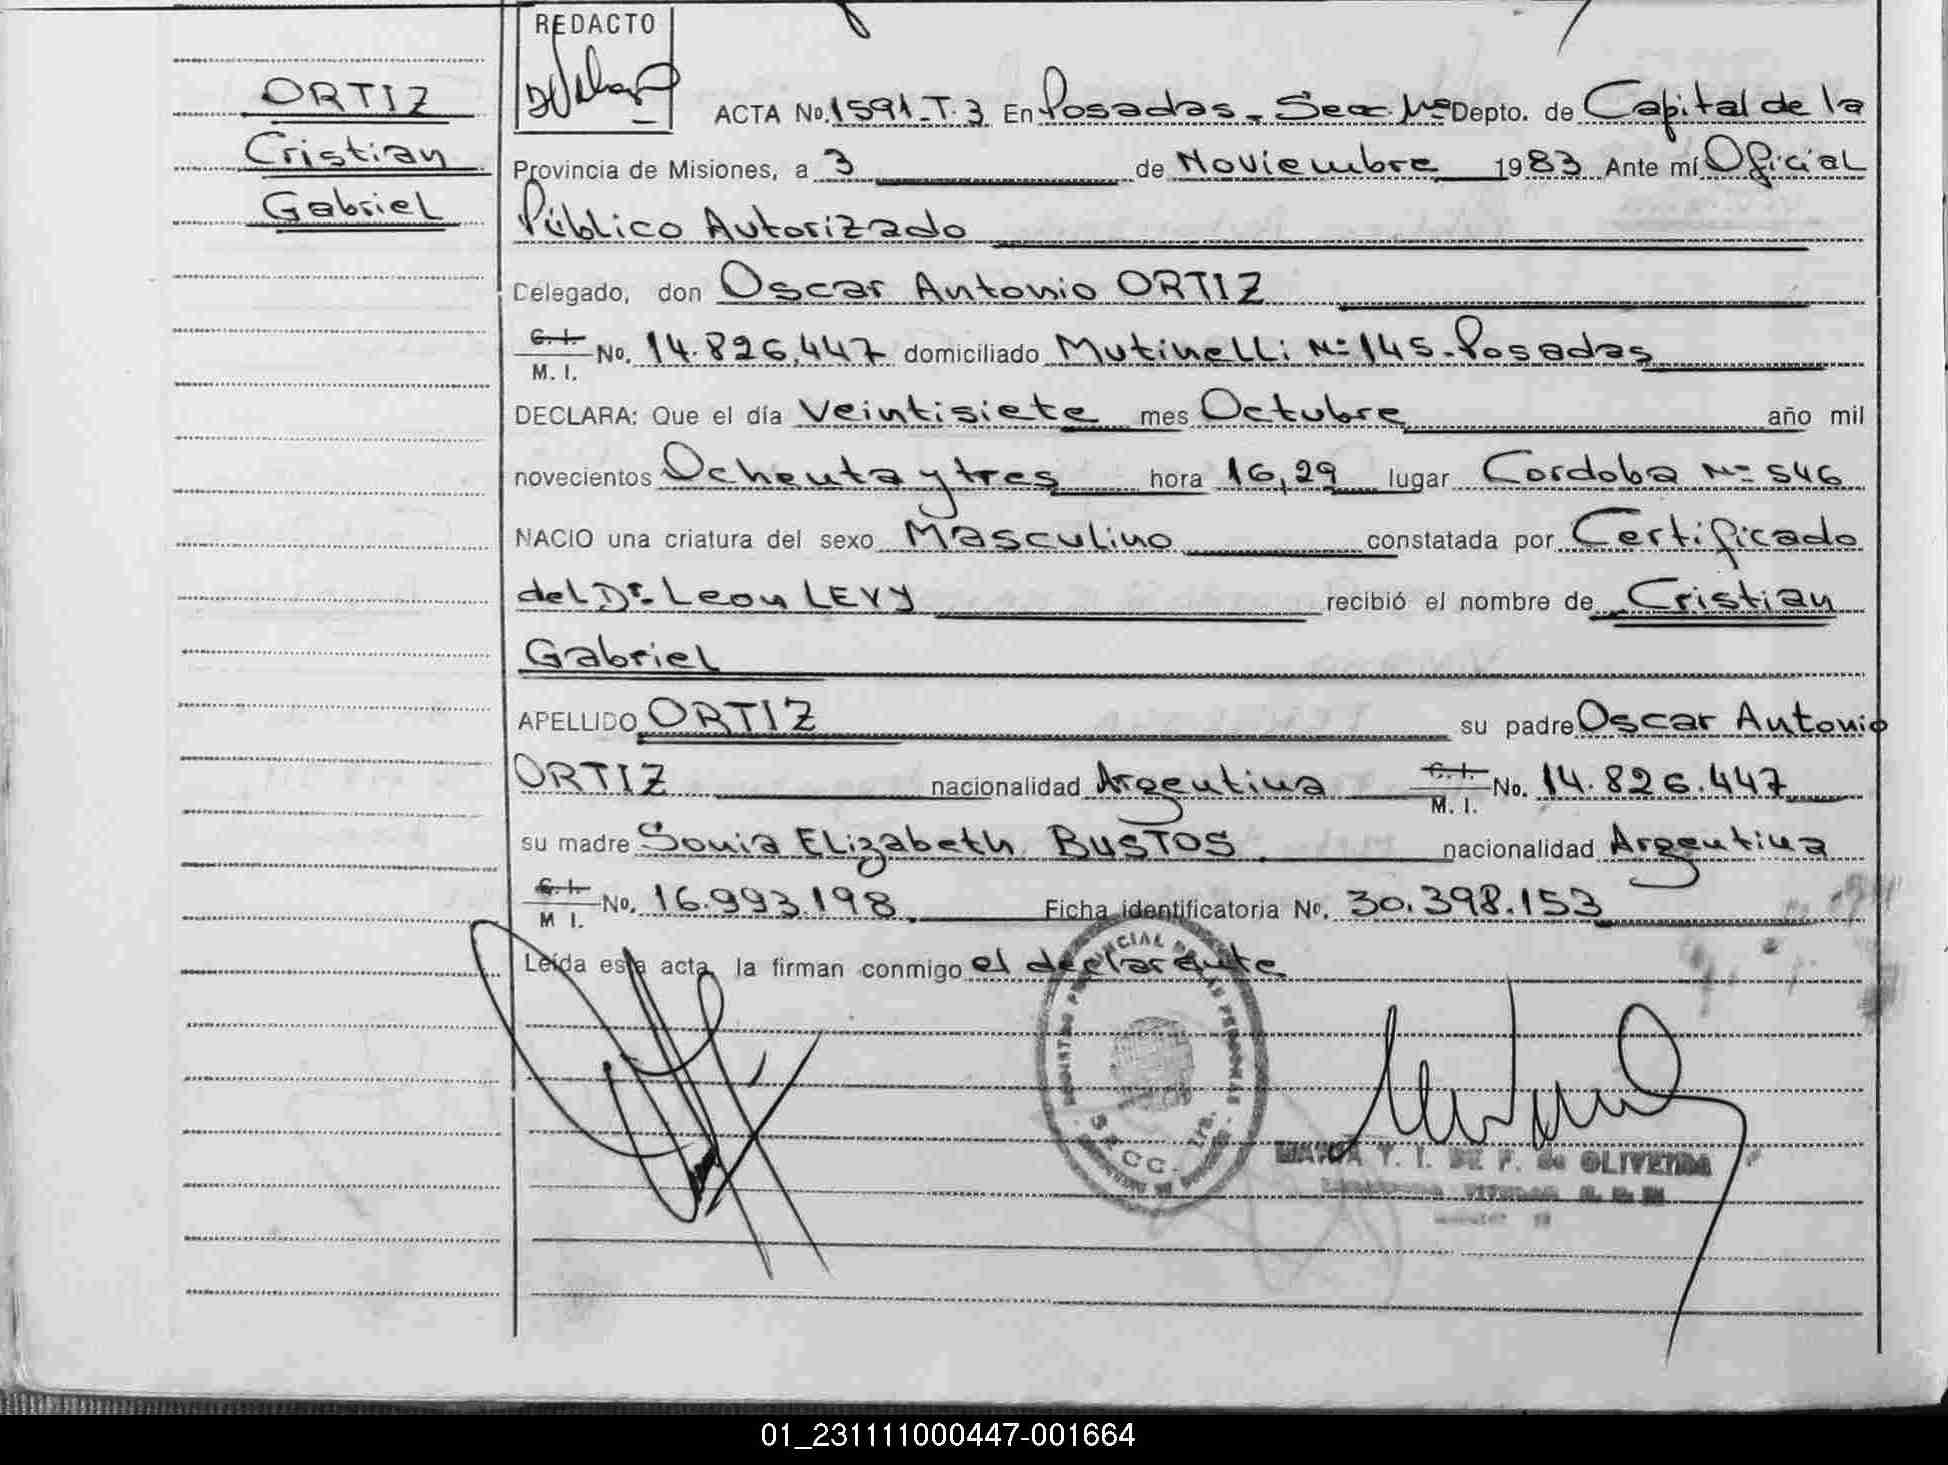 REDACTO
ORTIZ
Cristian
Gabriel
ACTA No. 1591-T.3 En Posadas - Secc. 1ra Depto. de Capital de la
Provincia de Misiones, a 3 de Noviembre 1983 Ante mí Oficial
Público Autorizado
Delegado, don Oscar Antonio ORTIZ
C. I.
M. I. No. 14.826.447 domiciliado Mutinelli Nº 145 - Posadas
DECLARA: Que el día Veintisiete mes Octubre año mil
novecientos Ochenta y tres hora 16,29 lugar Cordoba Nº 546
NACIO una criatura del sexo Masculino constatada por Certificado
del Dr. Leon LEVY recibió el nombre de Cristian
Gabriel
APELLIDO ORTIZ su padre Oscar Antonio
ORTIZ nacionalidad Argentina C. I. M. I. No. 14.826.447
su madre Sonia Elizabeth BUSTOS nacionalidad Argentina
C. I. M I. No. 16.993.198 Ficha identificatoria No. 30.398.153
Leída esta acta, la firman conmigo el declarante
REGISTRO PROVINCIAL DE LAS PERSONAS
SECC. 1ra.
MARIA T. I. DE F. de OLIVEIRA
01_231111000447-001664